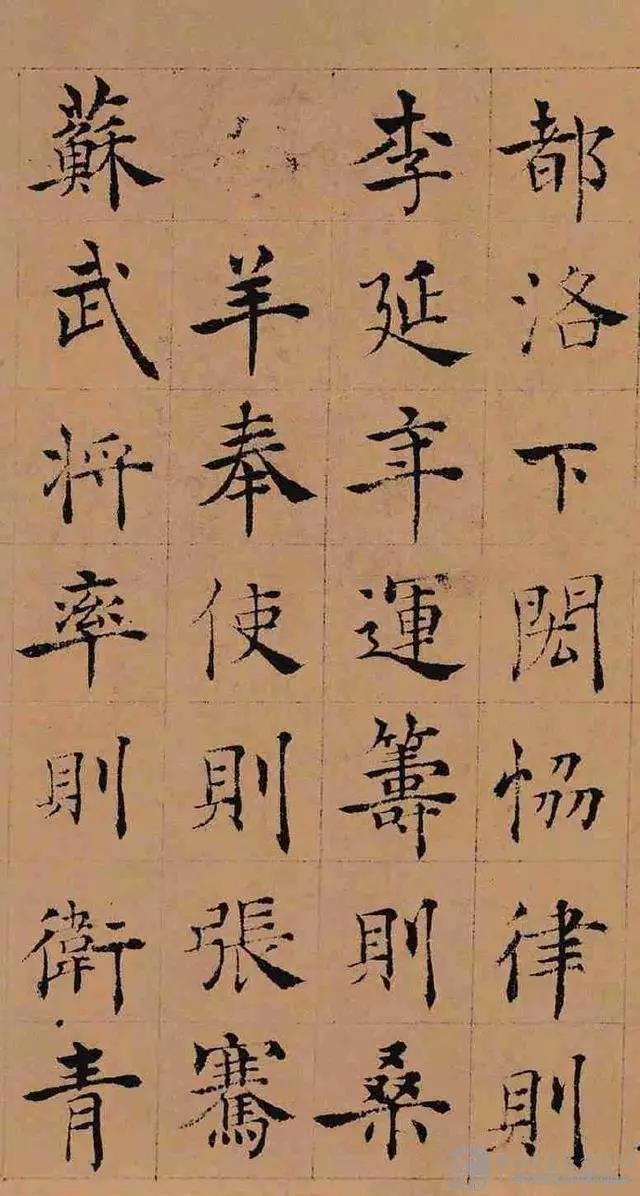 都洛下閎恊律則
李延年運籌則桑
羊奉使則張騫
蘇武将率則衛青